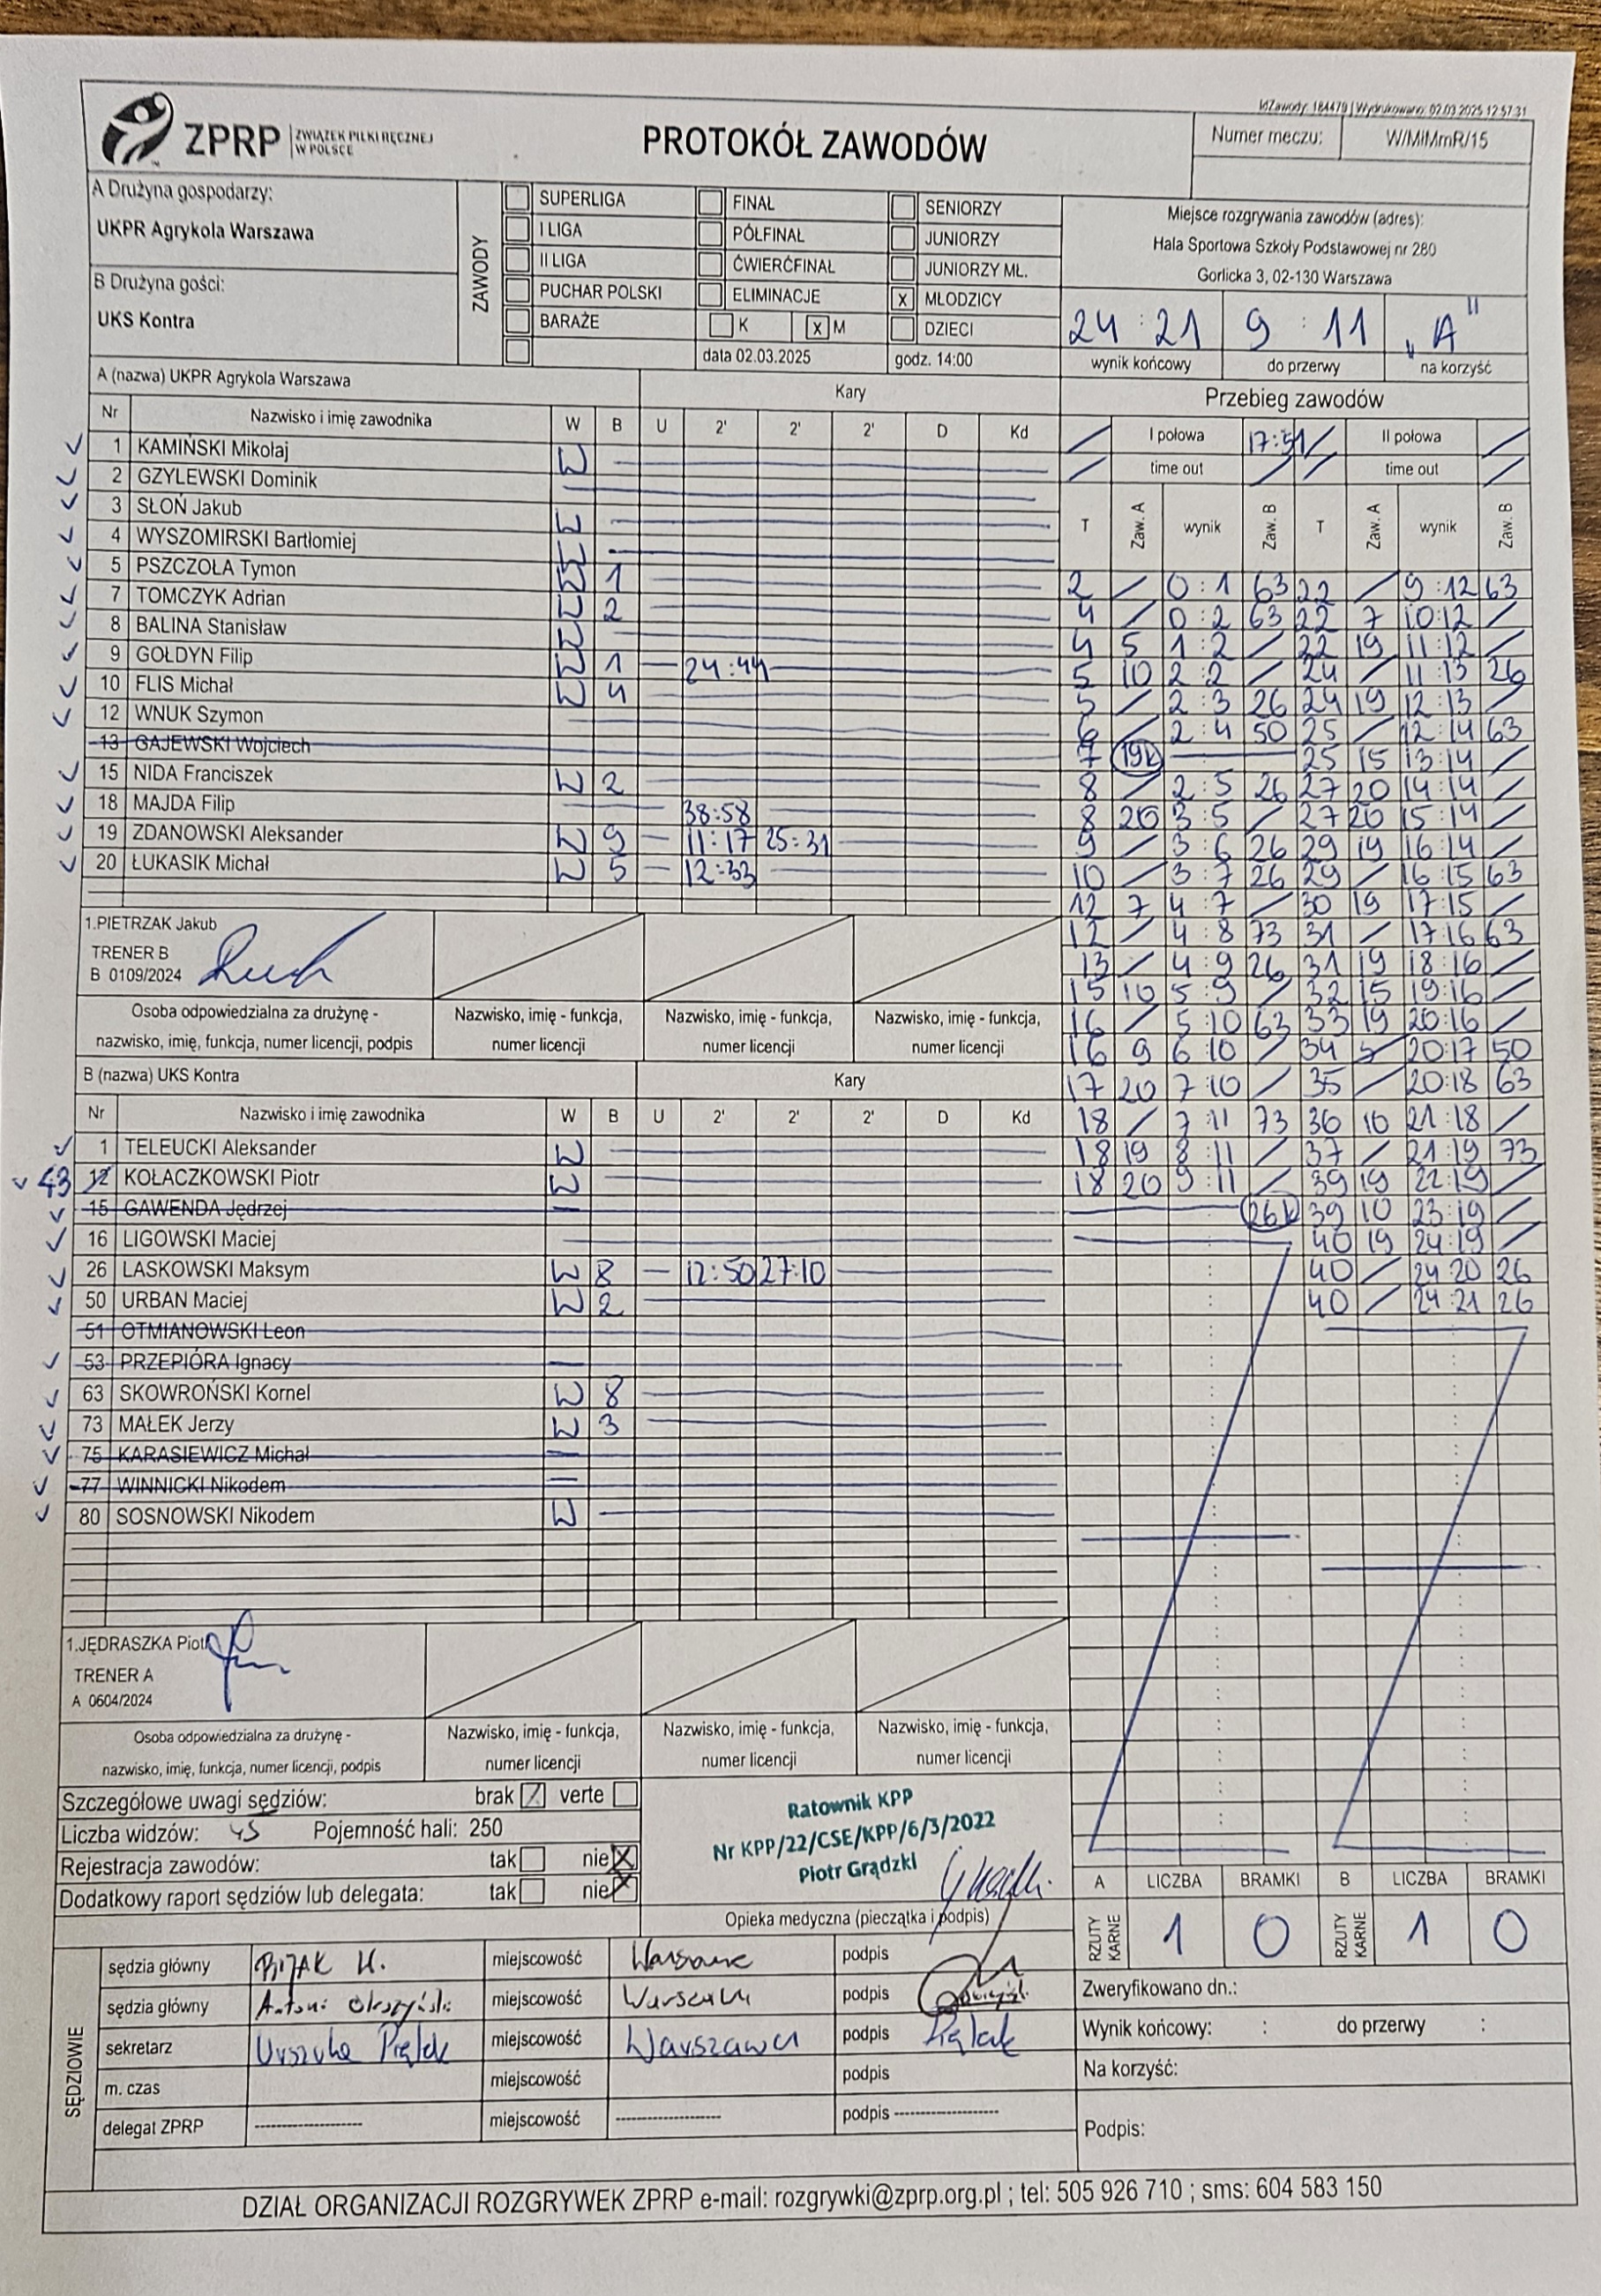 IdZawody: 184479 | Wydrukowano: 02.03.2025 12:57:31
ZPRP ZWIĄZEK PIŁKI RĘCZNEJ W POLSCE
PROTOKÓŁ ZAWODÓW
Numer meczu: W/MiMmR/15
A Drużyna gospodarzy:
UKPR Agrykola Warszawa
B Drużyna gości:
UKS Kontra
ZAWODY
SUPERLIGA FINAŁ SENIORZY
I LIGA PÓŁFINAŁ JUNIORZY
II LIGA ĆWIERĆFINAŁ JUNIORZY MŁ.
PUCHAR POLSKI ELIMINACJE X MŁODZICY
BARAŻE K X M DZIECI
data 02.03.2025 godz. 14:00
Miejsce rozgrywania zawodów (adres):
Hala Sportowa Szkoły Podstawowej nr 280
Gorlicka 3, 02-130 Warszawa
24 : 21 9 : 11 „A"
wynik końcowy do przerwy na korzyść
A (nazwa) UKPR Agrykola Warszawa Kary
Nr Nazwisko i imię zawodnika W B U 2' 2' 2' D Kd
1 KAMIŃSKI Mikołaj W
2 GZYLEWSKI Dominik
3 SŁOŃ Jakub W
4 WYSZOMIRSKI Bartłomiej W
5 PSZCZOŁA Tymon W 1
7 TOMCZYK Adrian W 2
8 BALINA Stanisław W
9 GOŁDYN Filip W 1 24:44
10 FLIS Michał W 4
12 WNUK Szymon
13 GAJEWSKI Wojciech
15 NIDA Franciszek W 2
18 MAJDA Filip 38:58
19 ZDANOWSKI Aleksander W 9 11:17 25:31
20 ŁUKASIK Michał W 5 12:33
1.PIETRZAK Jakub
TRENER B
B 0109/2024
Osoba odpowiedzialna za drużynę -
nazwisko, imię, funkcja, numer licencji, podpis
Nazwisko, imię - funkcja,
numer licencji
Nazwisko, imię - funkcja,
numer licencji
Nazwisko, imię - funkcja,
numer licencji
B (nazwa) UKS Kontra Kary
Nr Nazwisko i imię zawodnika W B U 2' 2' 2' D Kd
1 TELEUCKI Aleksander W
43 12 KOŁACZKOWSKI Piotr W
15 GAWENDA Jędrzej
16 LIGOWSKI Maciej
26 LASKOWSKI Maksym W 8 12:50 27:10
50 URBAN Maciej W 2
51 OTMIANOWSKI Leon
53 PRZEPIÓRA Ignacy
63 SKOWROŃSKI Kornel W 8
73 MAŁEK Jerzy W 3
75 KARASIEWICZ Michał
77 WINNICKI Nikodem
80 SOSNOWSKI Nikodem W
1.JĘDRASZKA Piotr
TRENER A
A 0604/2024
Osoba odpowiedzialna za drużynę -
nazwisko, imię, funkcja, numer licencji, podpis
Nazwisko, imię - funkcja,
numer licencji
Nazwisko, imię - funkcja,
numer licencji
Nazwisko, imię - funkcja,
numer licencji
Przebieg zawodów
I połowa 17:51 II połowa
time out time out
T Zaw. A wynik Zaw. B T Zaw. A wynik Zaw. B
2 / 0:1 63 22 / 9:12 63
4 / 0:2 63 22 7 10:12 /
4 5 1:2 / 22 19 11:12 /
5 10 2:2 / 24 / 11:13 26
5 / 2:3 26 24 19 12:13 /
6 / 2:4 50 25 / 12:14 63
7 19k 25 15 13:14 /
8 / 2:5 26 27 20 14:14 /
8 20 3:5 / 27 20 15:14 /
9 / 3:6 26 29 19 16:14 /
10 / 3:7 26 29 / 16:15 63
12 7 4:7 / 30 19 17:15 /
12 / 4:8 73 31 / 17:16 63
13 / 4:9 26 31 19 18:16 /
15 10 5:9 / 32 15 19:16 /
16 / 5:10 63 33 19 20:16 /
16 9 6:10 / 34 / 20:17 50
17 20 7:10 / 35 / 20:18 63
18 / 7:11 73 36 10 21:18 /
18 19 8:11 / 37 / 21:19 73
18 20 9:11 / 39 19 22:19 /
26k 39 10 23:19 /
40 19 24:19 /
40 / 24:20 26
40 / 24:21 26
Szczegółowe uwagi sędziów: brak verte
Liczba widzów: 45 Pojemność hali: 250
Rejestracja zawodów: tak nie X
Dodatkowy raport sędziów lub delegata: tak nie X
Ratownik KPP
Nr KPP/22/CSE/KPP/6/3/2022
Piotr Grądzki
Opieka medyczna (pieczątka i podpis)
A LICZBA BRAMKI B LICZBA BRAMKI
RZUTY KARNE 1 0 RZUTY KARNE 1 0
SĘDZIOWIE
sędzia główny BIJAK H. miejscowość Warszawa podpis
sędzia główny Antoni miejscowość Warszawa podpis
sekretarz Urszula Piątek miejscowość Warszawa podpis Piątek
m. czas miejscowość podpis
delegat ZPRP -------------------- miejscowość -------------------- podpis --------------------
Zweryfikowano dn.:
Wynik końcowy: : do przerwy :
Na korzyść:
Podpis:
DZIAŁ ORGANIZACJI ROZGRYWEK ZPRP e-mail: rozgrywki@zprp.org.pl ; tel: 505 926 710 ; sms: 604 583 150